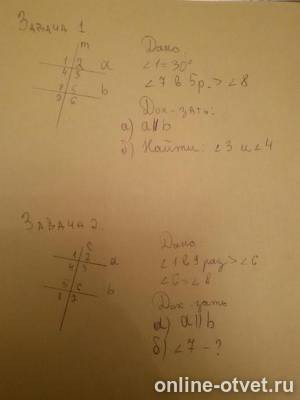 Задача 1
m
1 2 a
4 3
8 5 b
7 6
Дано:
∠1=30°
∠7 в 5р. > ∠8
Док-зать:
а) a∥b
б) Найти: ∠3 и ∠4
Задача 2.
c
1 2
4 3 a
5 6 b
8 7
Дано:
∠1 в 9 раз > ∠6
∠6=∠8
Док-зать
а) a∥b
б) ∠7 - ?
online-otvet.ru